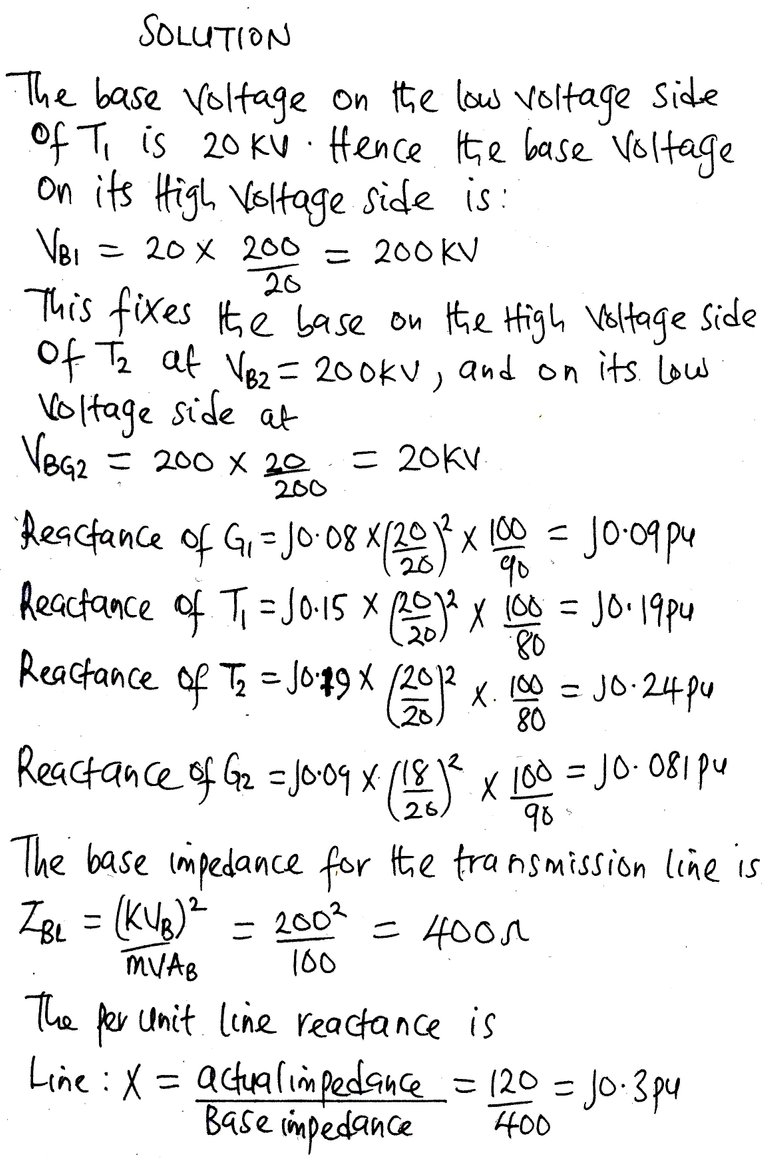 SOLUTION
The base Voltage on the low voltage side
Of T₁ is 20 KV. Hence the base Voltage
On its High Voltage side is:
V_B1 = 20 × 200/20 = 200KV
This fixes the base on the High Voltage side
Of T₂ at V_B2 = 200KV, and on its Low
Voltage side at
V_BG2 = 200 × 20/200 = 20KV
Reactance of G₁ = J0.08 × (20/20)² × 100/90 = J0.09pu
Reactance of T₁ = J0.15 × (20/20)² × 100/80 = J0.19pu
Reactance of T₂ = J0.19 × (20/20)² × 100/80 = J0.24pu
Reactance of G₂ = J0.09 × (18/20)² × 100/90 = J0.081pu
The base impedance for the transmission line is
Z_BL = (KV_B)²/MVA_B = 200²/100 = 400Ω
The per unit line reactance is
Line: X = actual impedance/Base impedance = 120/400 = J0.3pu